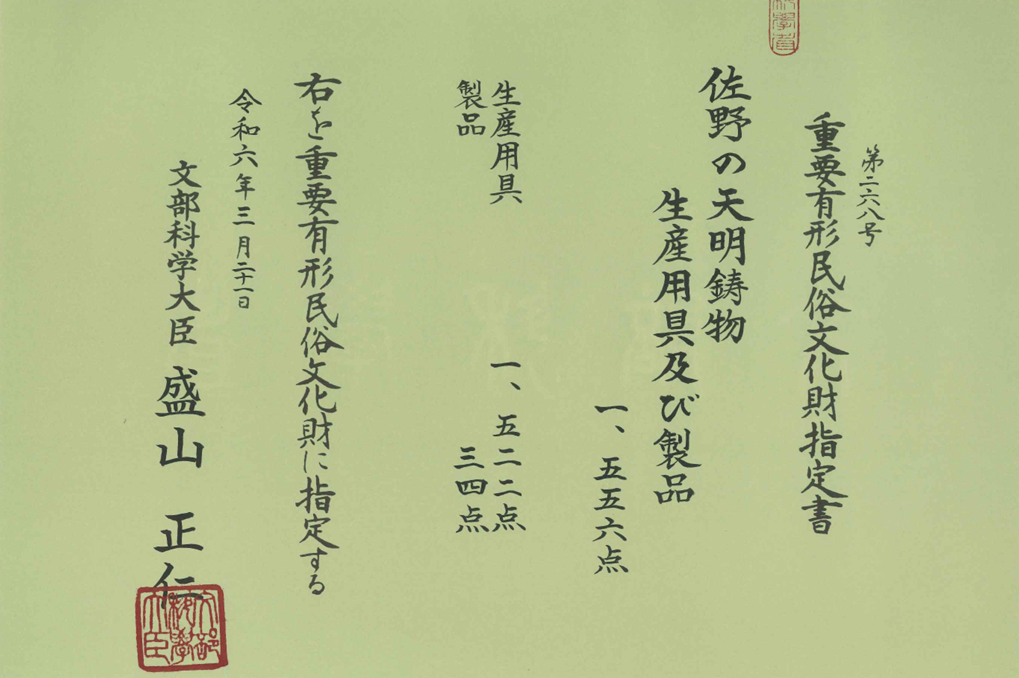 第二六八号
重要有形民俗文化財指定書
佐野の天明鋳物
生産用具及び製品
一、五五六点
生産用具 一、五二二点
製品 三四点
右を重要有形民俗文化財に指定する
令和六年三月二十一日
文部科学大臣 盛山 正仁
文部科學大臣